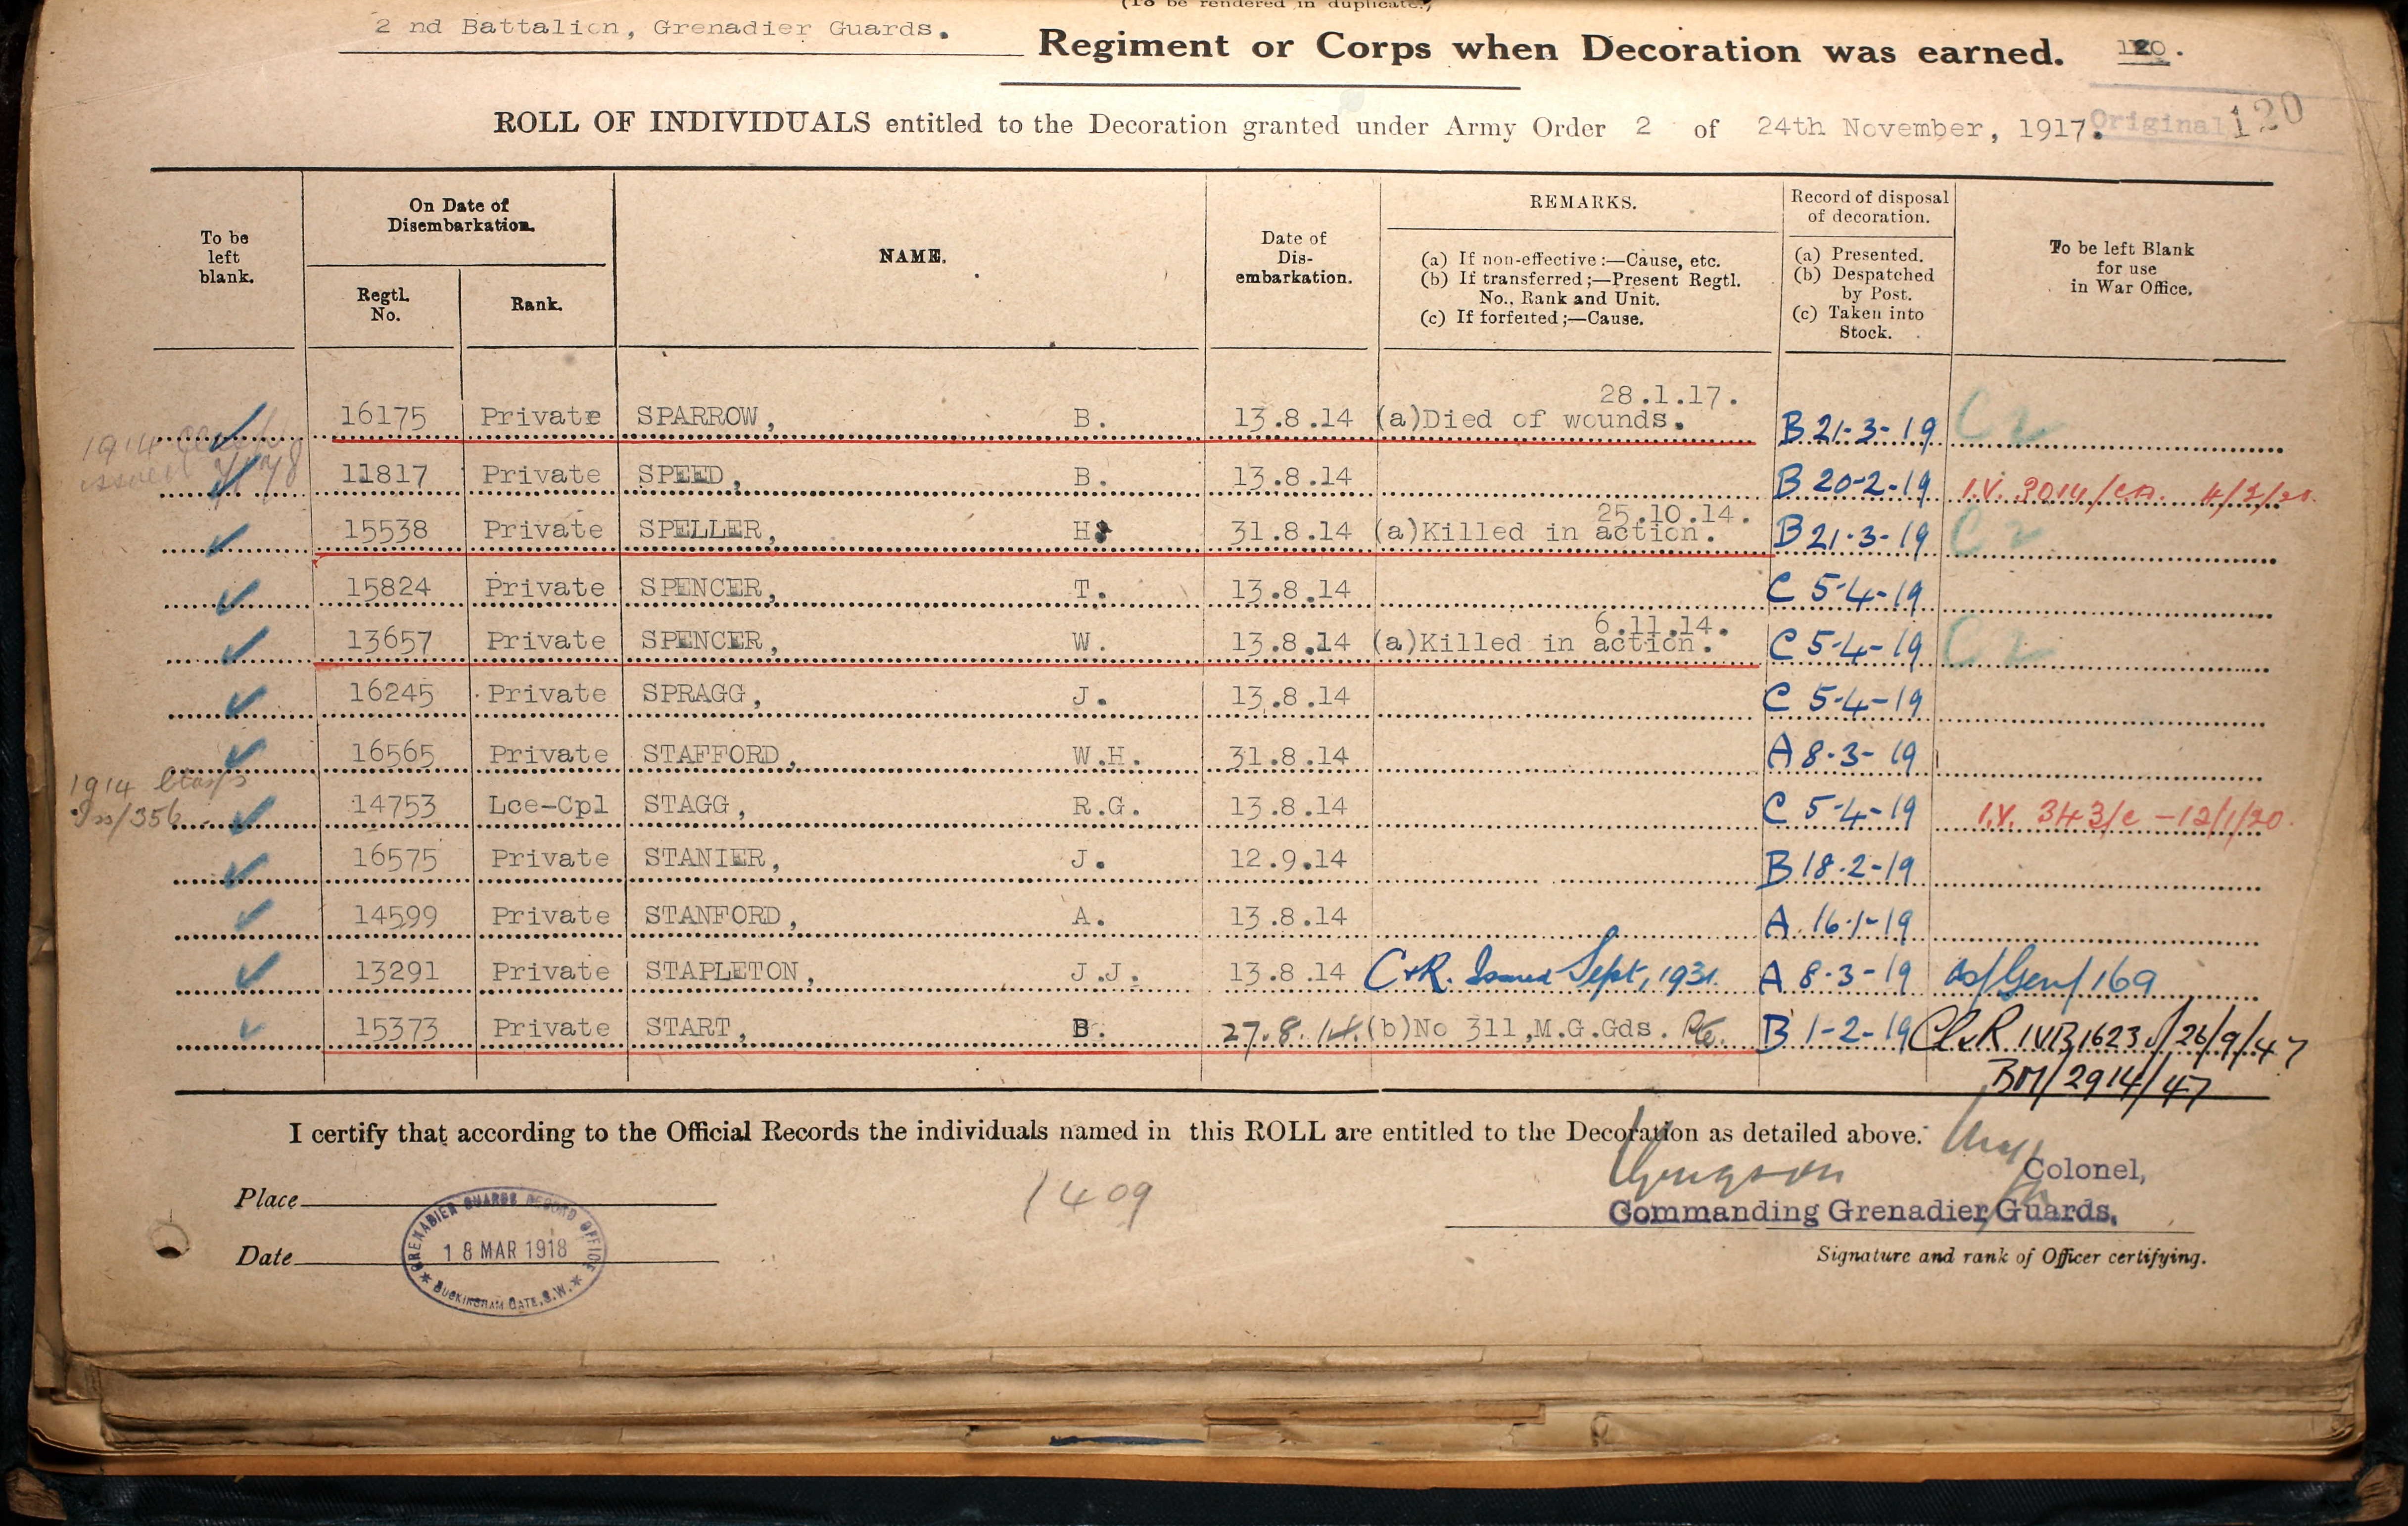 (To be rendered in duplicate.)
2 nd Battalion, Grenadier Guards. Regiment or Corps when Decoration was earned. 120.
ROLL OF INDIVIDUALS entitled to the Decoration granted under Army Order 2 of 24th November, 1917. Original 120
To be left blank.
On Date of Disembarkation.
Regtl. No.
Rank.
NAME.
Date of Dis-embarkation.
REMARKS.
(a) If non-effective:—Cause, etc.
(b) If transferred;—Present Regtl. No., Rank and Unit.
(c) If forfeited;—Cause.
Record of disposal of decoration.
(a) Presented.
(b) Despatched by Post.
(c) Taken into Stock.
To be left Blank for use in War Office.
28.1.17.
16175 Private SPARROW, B. 13.8.14 (a)Died of wounds. B 21-3-19 C2
1914
issued
11817 Private SPEED, B. 13.8.14 B 20-2-19 I.V. 9014/
25.10.14.
15538 Private SPELLER, H. 31.8.14 (a)Killed in action. B 21-3-19 C2
15824 Private SPENCER, T. 13.8.14 C 5-4-19
6.11.14.
13657 Private SPENCER, W. 13.8.14 (a)Killed in action. C 5-4-19 C2
16245 Private SPRAGG, J. 13.8.14 C 5-4-19
16565 Private STAFFORD, W.H. 31.8.14 A 8-3-19
1914 Clasp
Iss/356 14753 Lce-Cpl STAGG, R.G. 13.8.14 C 5-4-19 I.V. 343/c -12/1/20
16575 Private STANIER, J. 12.9.14 B 18-2-19
14599 Private STANFORD, A. 13.8.14 A 16-1-19
13291 Private STAPLETON, J.J. 13.8.14 C&R. Issued Sept, 1931. A 8-3-19 /Gen/169
15373 Private START, B. 27.8.14. (b)No 311,M.G.Gds. Pte. B 1-2-19 Cl&R IVB 1623 /26/9/47
BM/2914/47
I certify that according to the Official Records the individuals named in this ROLL are entitled to the Decoration as detailed above.
Colonel,
1409
Place
Commanding Grenadier Guards.
GRENADIER GUARDS RECORD OFFICE
18 MAR 1918
BUCKINGHAM GATE, S.W.
Date
Signature and rank of Officer certifying.